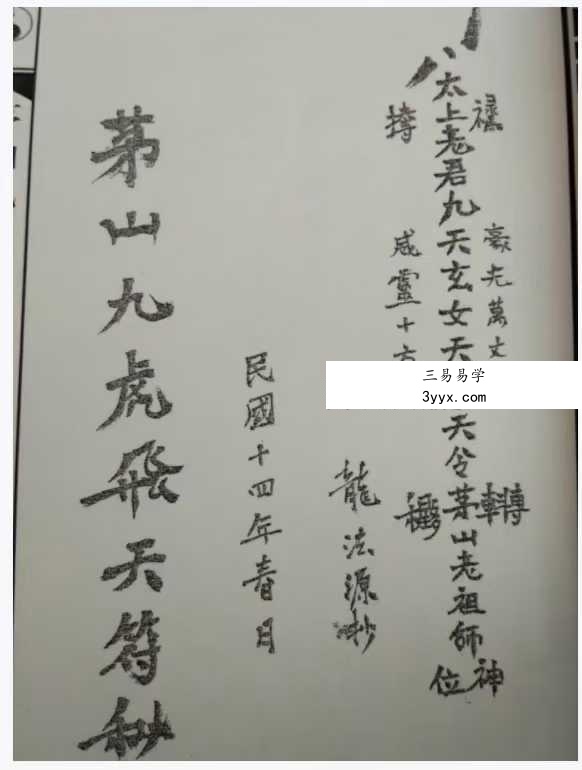 太上老君九天玄女天
天兮茅山老祖師神位
豪光萬丈
轉
威靈十方
龍法源抄
民國十四年春日
茅山九虎飛天符秘
三易易学
3yyx.com